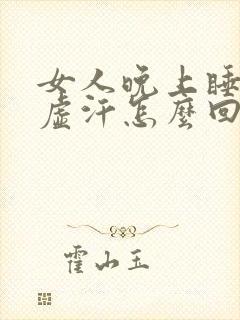 女人晚上睡
虛汗怎麼回
霍山玉